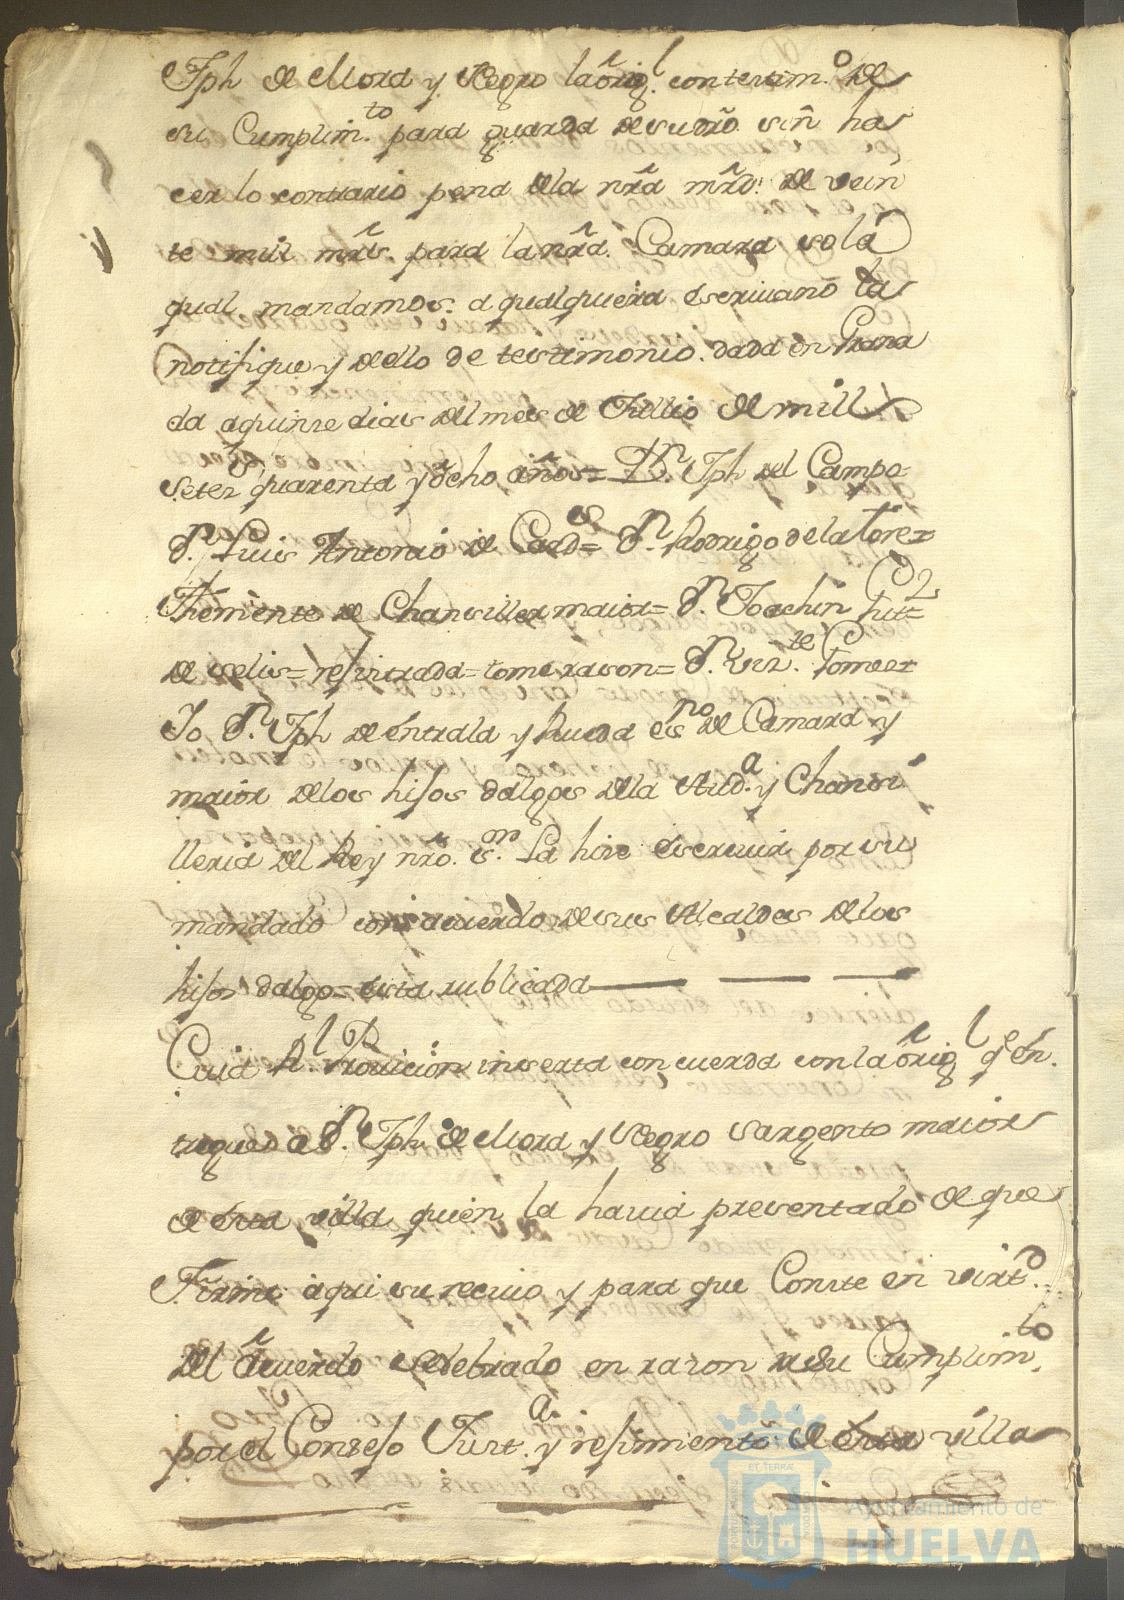 Jph de Mora y Negro la orig.l con testim.o de
su Cumplim.to para guarda de su dro. sin ha-
cer lo contrario pena dela nrã mrd. de vein
te mill mrs. para la nrã. Camara so la
qual mandamos. a qualquiera escriuano la
notifique y de ello de testimonio. dada en Grana
da a quinse dias del mes de Jullio de mill
Setez.os quarenta y ocho años= D.n Jph del Campo=
D.n Luis Antonio de = D.n Rodrigo de la Torre=
Theniente de Chansiller maior= D.n Joachin
de Solis= rejistrada= tome rason= D.n Viz.te
Yo D.n Jph de éntrala y Rueda es.no de Camara y
maior delos hijos dalgos dela Aud.a y Chansi
lleria del Rey nrõ. s.or La hise escriuir por su
mandado con acuerdo de sus Alcaldes delos
hijos dalgo= esta rublicada
Cuia R.l Prouicion inserta concuerda con la orig.l q.e én.
tregue a D.n Jph de Mora y Negro Sargento maior
de ésta villa quien la hauia presentado de que
Firmo aqui su reciuo y para que Conste en virt.d
del ácuerdo Selebrado en razon de su Cumplim.to
por el Consejo Just.a y rejimiento de ésta villa
ET TERRÆ
Ayuntamiento de
HUELVA